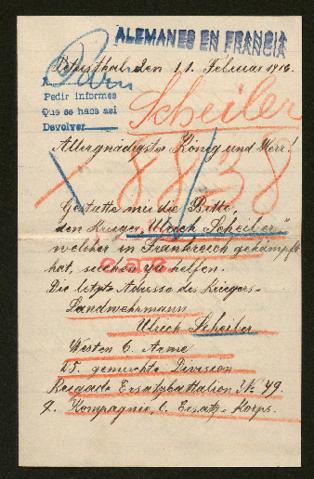 ALEMANES EN FRANCIA
Petersthal, den 11. Februar 1916.
Pedir informes
Que se haga asi
Devolver
Scheiler
Allergnädigster König und Herr!
8838
Gestatte mir die Bitte,
den Krieger „Ulrich Scheiler"
welcher in Frankreich gekämpft
hat, suchen zu helfen.
Die letzte Adresse des Kriegers
Landwehrmann
Ulrich Scheiler
Westen 6. Armee
25. gemischte Division
Brigade Ersatzbattalion № 49
7. Kompagnie, b. Ersatz-Korps.